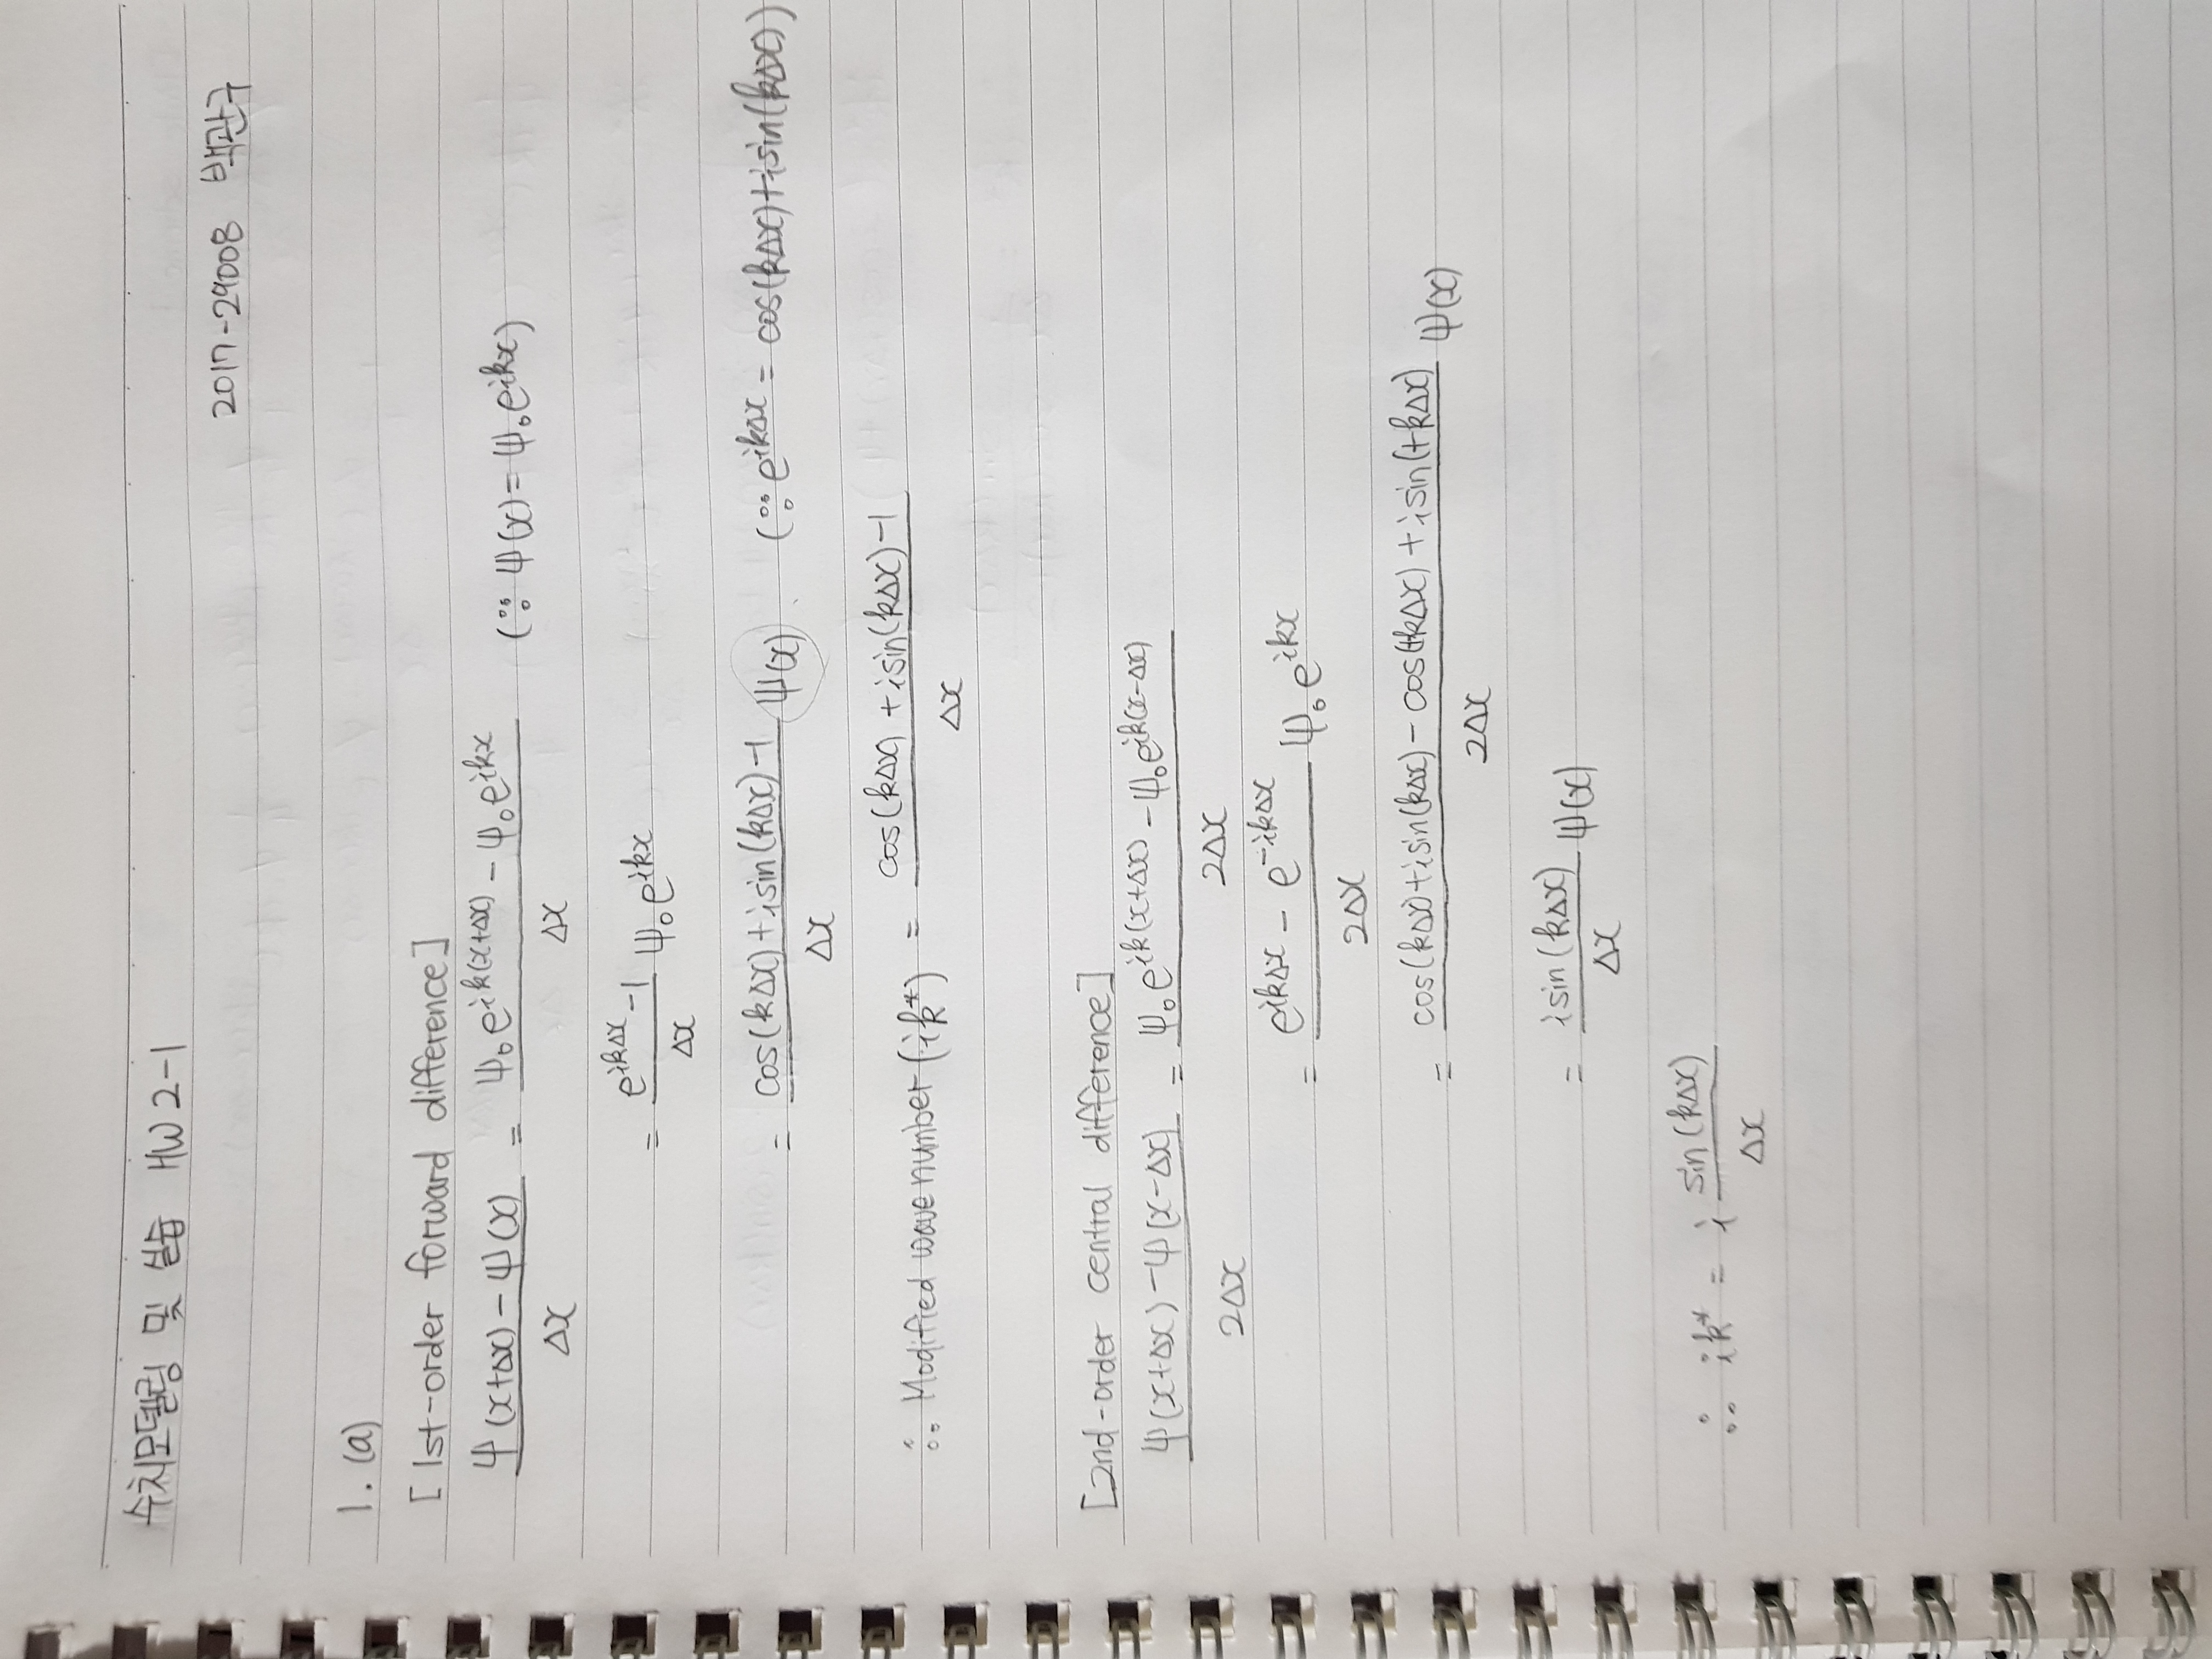 수치모델링 및 실습 HW 2-1
2017-29008 백관구
1. (a)
[1st-order forward difference]
(ψ(x+Δx) - ψ(x))/Δx = (ψ₀e^{ik(x+Δx)} - ψ₀e^{ikx})/Δx (∵ ψ(x) = ψ₀e^{ikx})
= (e^{ikΔx} - 1)/Δx ψ₀e^{ikx}
= (cos(kΔx) + isin(kΔx) - 1)/Δx ψ(x) (∵ e^{ikΔx} = cos(kΔx) + isin(kΔx))
∴ Modified wave number (ik*) = (cos(kΔx) + isin(kΔx) - 1)/Δx
[2nd-order central difference]
(ψ(x+Δx) - ψ(x-Δx))/2Δx = (ψ₀e^{ik(x+Δx)} - ψ₀e^{ik(x-Δx)})/2Δx
= (e^{ikΔx} - e^{-ikΔx})/2Δx ψ₀e^{ikx}
= (cos(kΔx) + isin(kΔx) - cos(+kΔx) + isin(+kΔx))/2Δx ψ(x)
= isin(kΔx)/Δx ψ(x)
∴ ik* = i sin(kΔx)/Δx